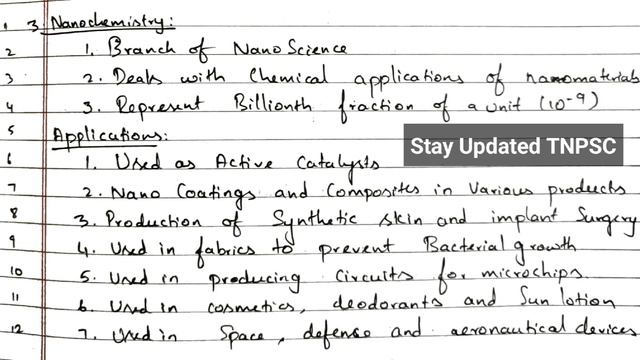 1 3. Nanochemistry:
2 1. Branch of Nano Science
3 2. Deals with Chemical applications of nanomaterials
4 3. Represent Billionth fraction of a unit (10-9)
5 Applications:
Stay Updated TNPSC
6 1. Used as Active Catalysts
7 2. Nano Coatings and Composites in Various products
8 3. Production of Synthetic skin and implant Surgery
9 4. Used in fabrics to prevent Bacterial growth
10 5. Used in producing circuits for microchips.
11 6. Used in cosmetics, deodorants and Sun lotion
12 7. Used in Space, defense and aeronautical devices